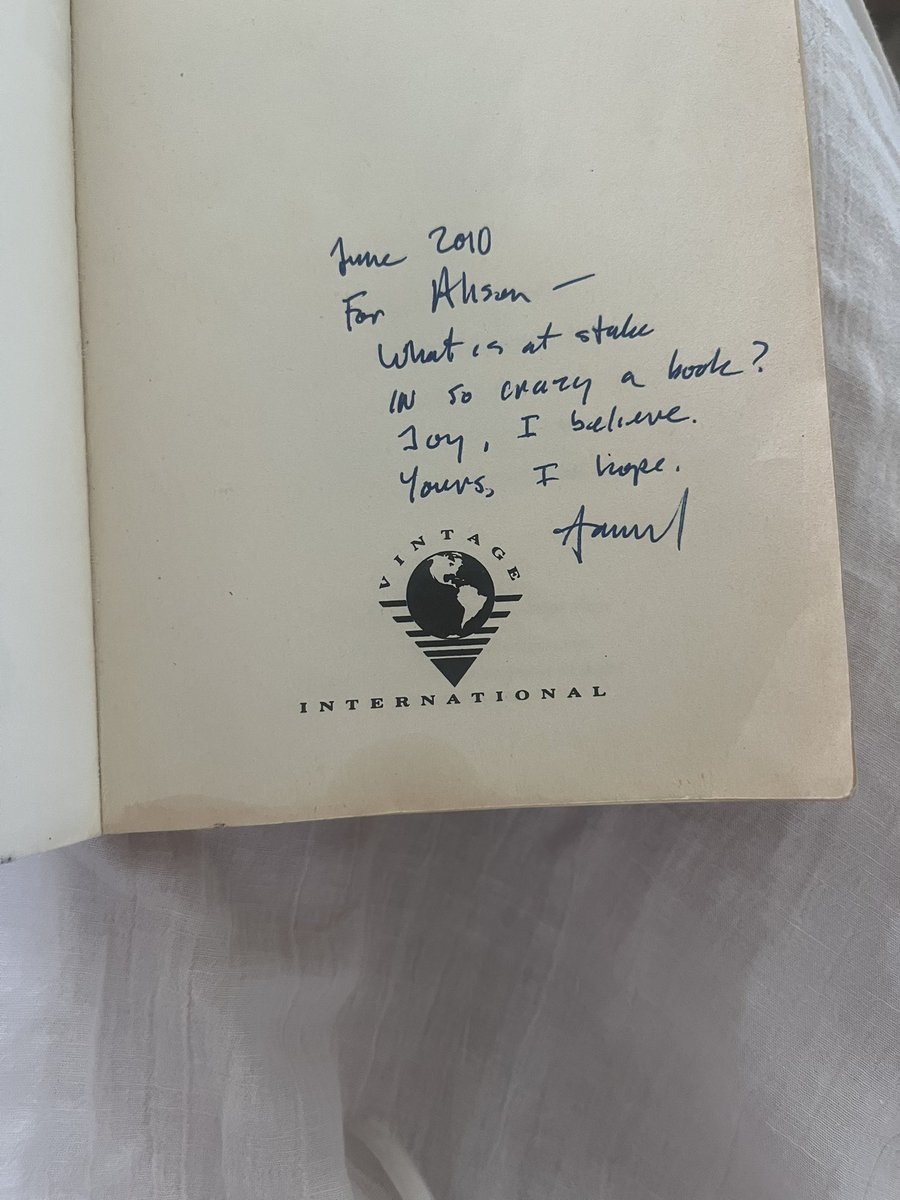 June 2010
For Alison —
What is at stake
IN so crazy a book?
Joy, I believe.
Yours, I hope.
VINTAGE
INTERNATIONAL